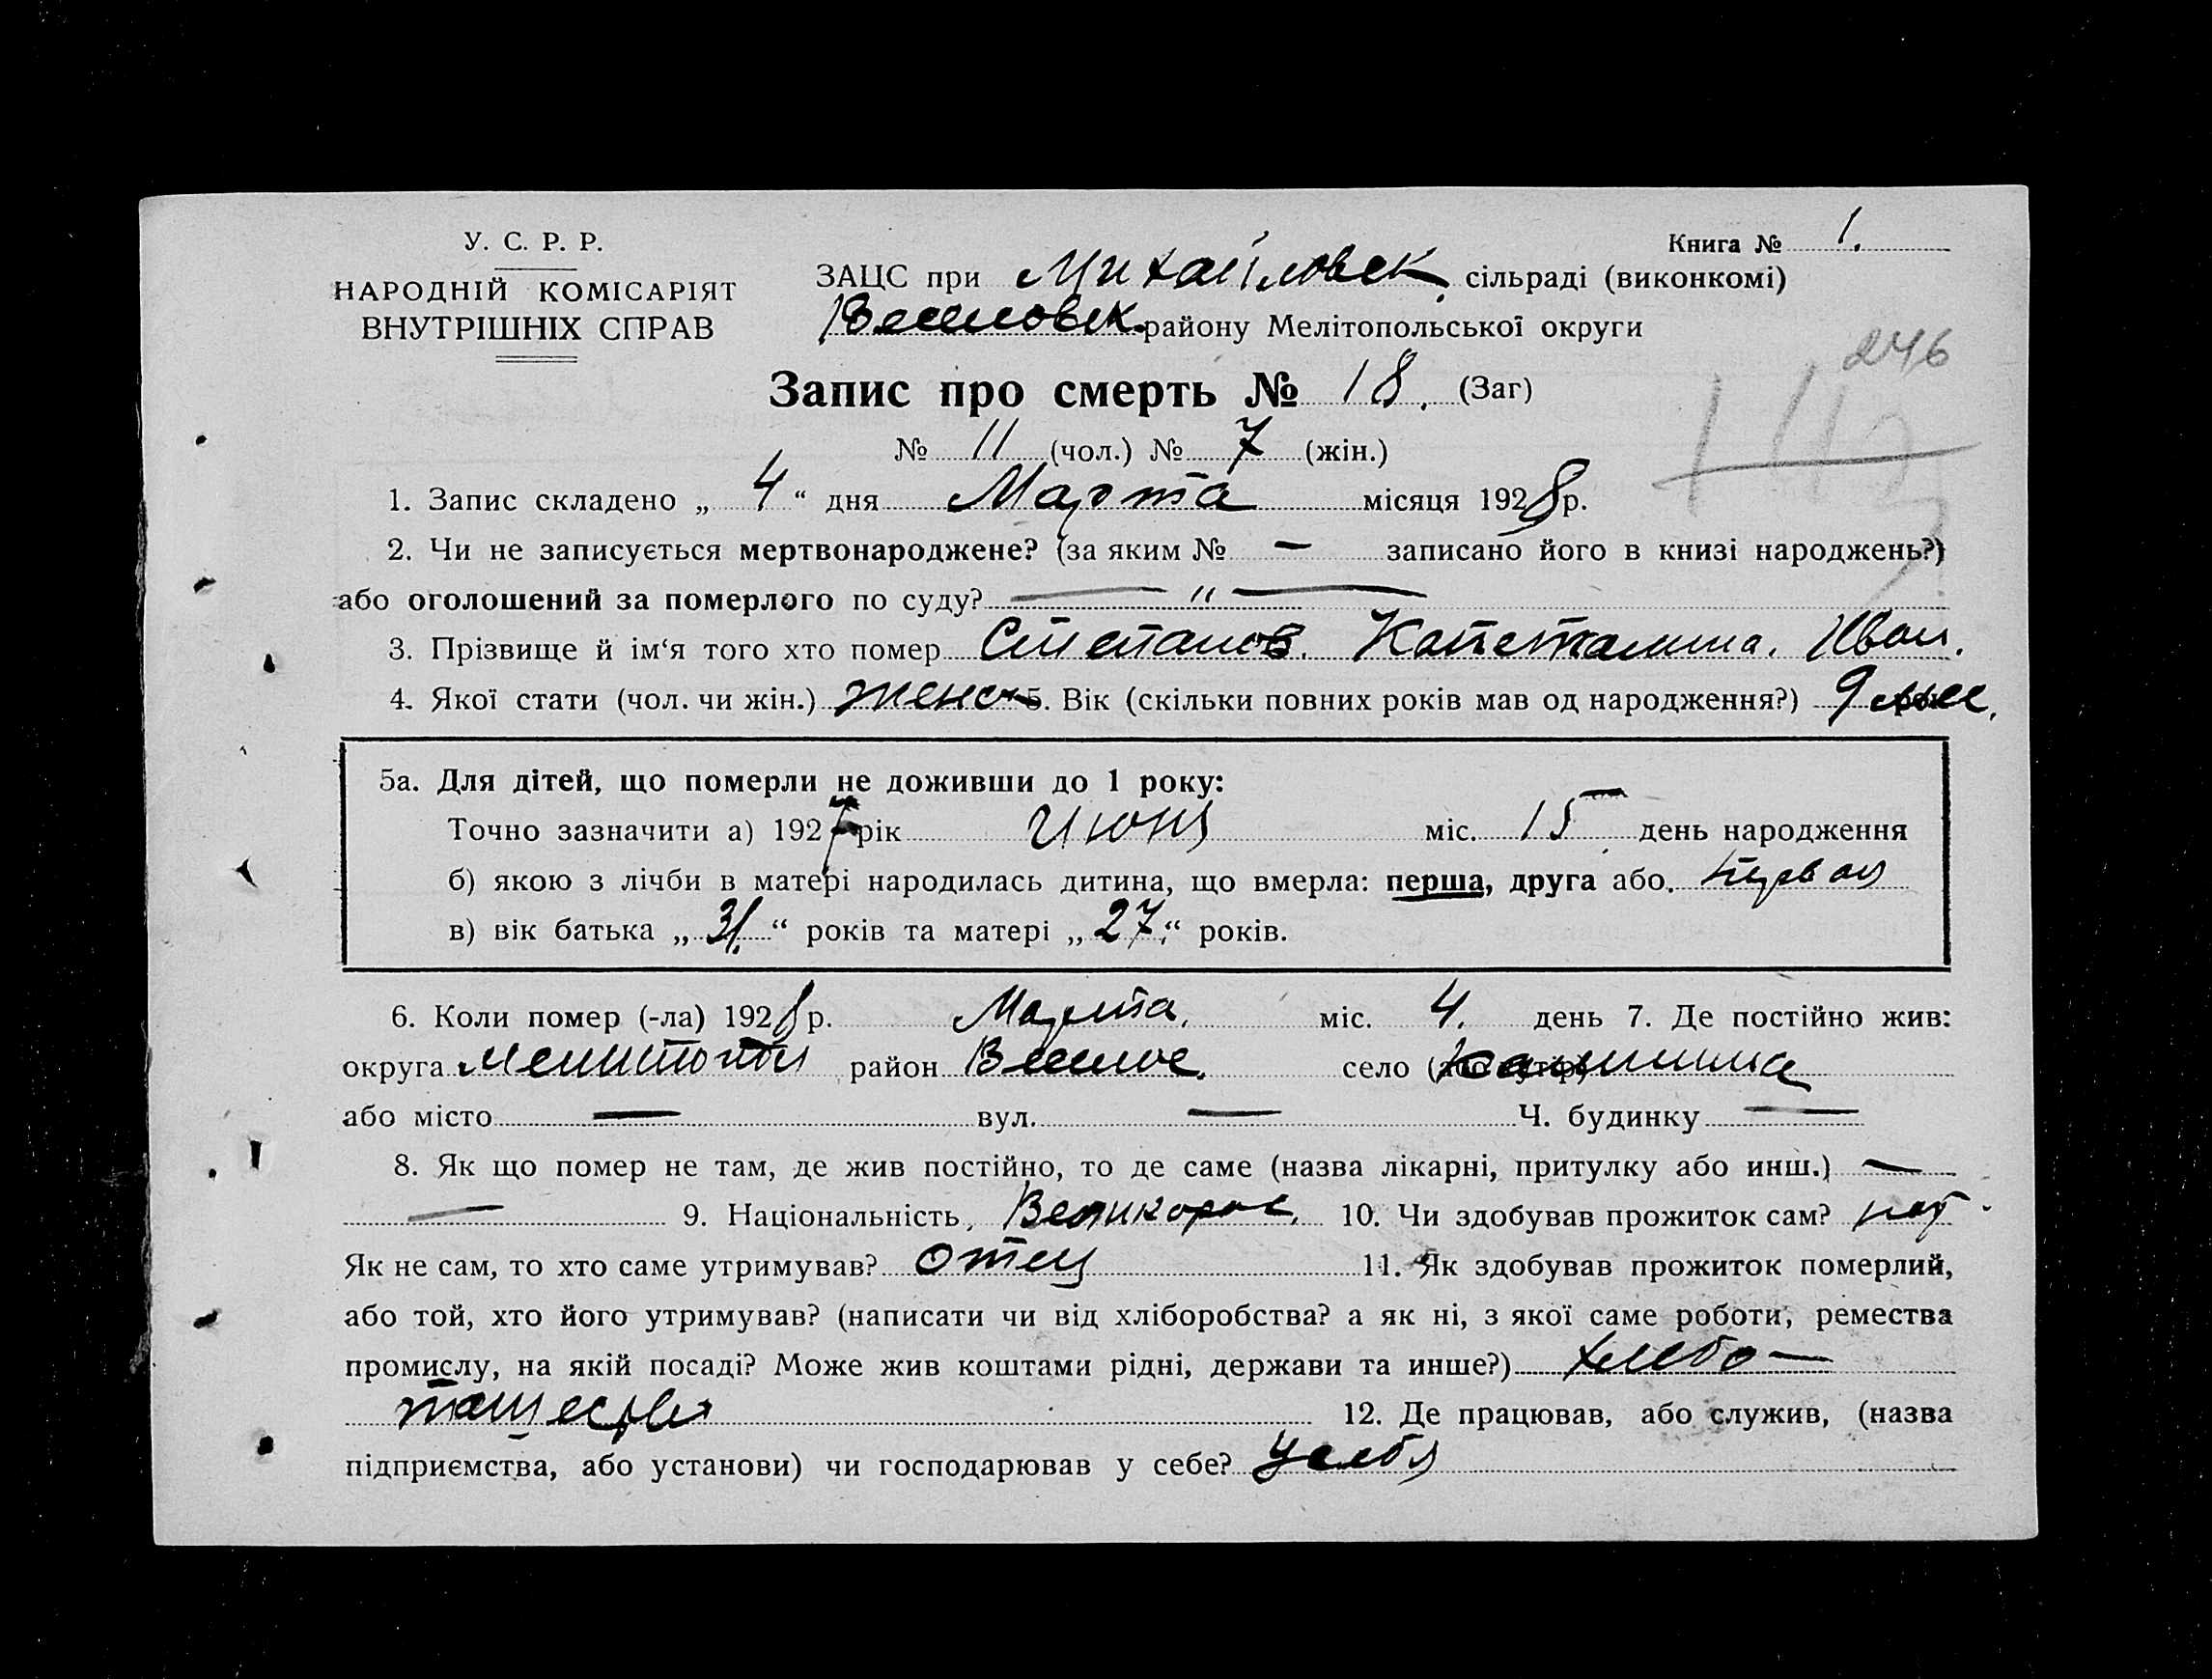 У. С. Р. Р.
НАРОДНІЙ КОМІСАРІЯТ
ВНУТРІШНІХ СПРАВ
Книга № 1.
ЗАЦС при Михайловск. сільраді (виконкомі)
Веселовск. району Мелітопольської округи
246
Запис про смерть № 18. (Заг)
№ 11 (чол.) № 7 (жін.)
1. Запис складено „ 4 “ дня Марта місяця 1928 р.
2. Чи не записується мертвонароджене? (за яким № — записано його в книзі народжень?)
або оголошений за померлого по суду? — " —
3. Прізвище й ім‘я того хто помер Степанов. Иван.
4. Якої стати (чол. чи жін.) женск 5. Вік (скільки повних років мав од народження?) 9 мес.
5а. Для дітей, що померли не доживши до 1 року:
Точно зазначити а) 1927 рік Июня міс. 15 день народження
б) якою з лічби в матері народилась дитина, що вмерла: перша, друга або. первая
в) вік батька „ 31. “ років та матері „ 27. “ років.
6. Коли помер (-ла) 1928 р. Марта. міс. 4. день 7. Де постійно жив:
округа Мелитопол район Веселое. село (або хутір) Калинина
або місто — вул. — Ч. будинку —
8. Як що помер не там, де жив постійно, то де саме (назва лікарні, притулку або инш.) —
— 9. Національність, Великорос. 10. Чи здобував прожиток сам? нет
Як не сам, то хто саме утримував? отец 11. Як здобував прожиток померлий,
або той, хто його утримував? (написати чи від хліборобства? а як ні, з якої саме роботи, ремества
промислу, на якій посаді? Може жив коштами рідні, держави та инше?) хлебо—
пашеств 12. Де працював, або служив, (назва
підприємства, або установи) чи господарював у себе? У себя